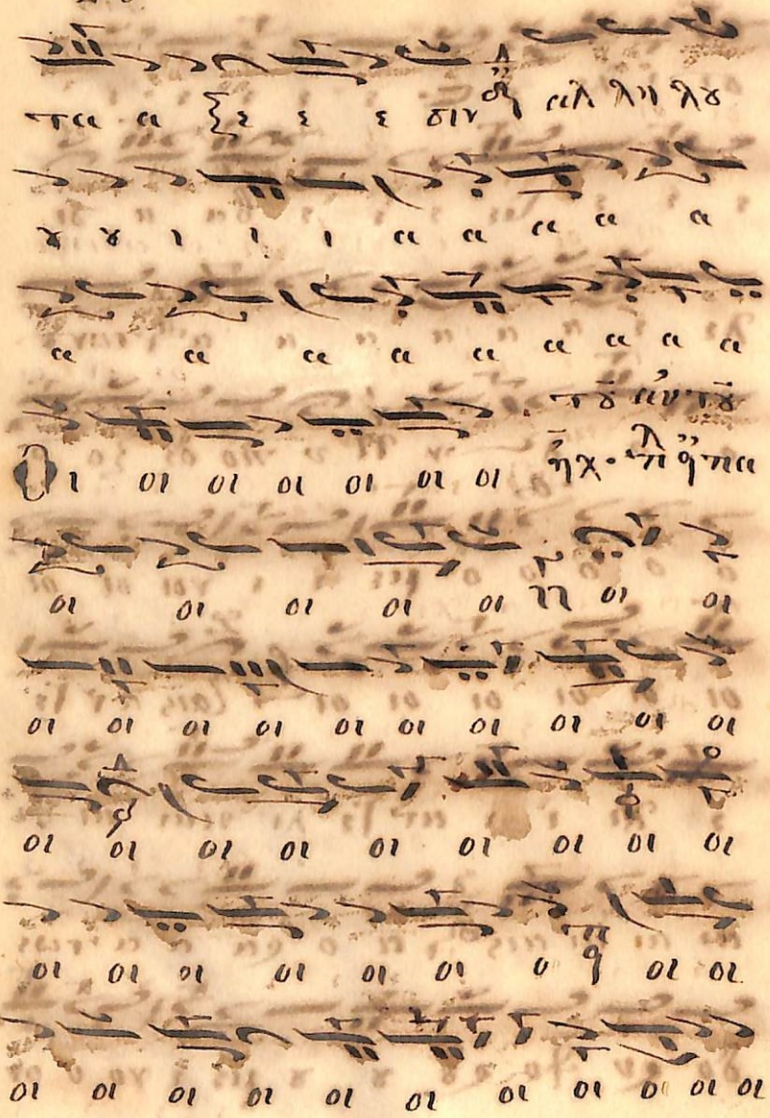 πα α ξε ε ε σιν αλ λη λου
ου ου ι ι ι α α α α α
α α α α α α α α α
τοῦ αὐτοῦ
Οι οι οι οι οι οι οι ἦχος πλ πα
οι οι οι οι οι οι οι
οι οι οι οι οι οι οι οι οι οι
οι οι οι οι οι οι οι οι οι
οι οι οι οι οι οι ο οι οι
οι οι οι οι οι οι οι οι οι οι οι